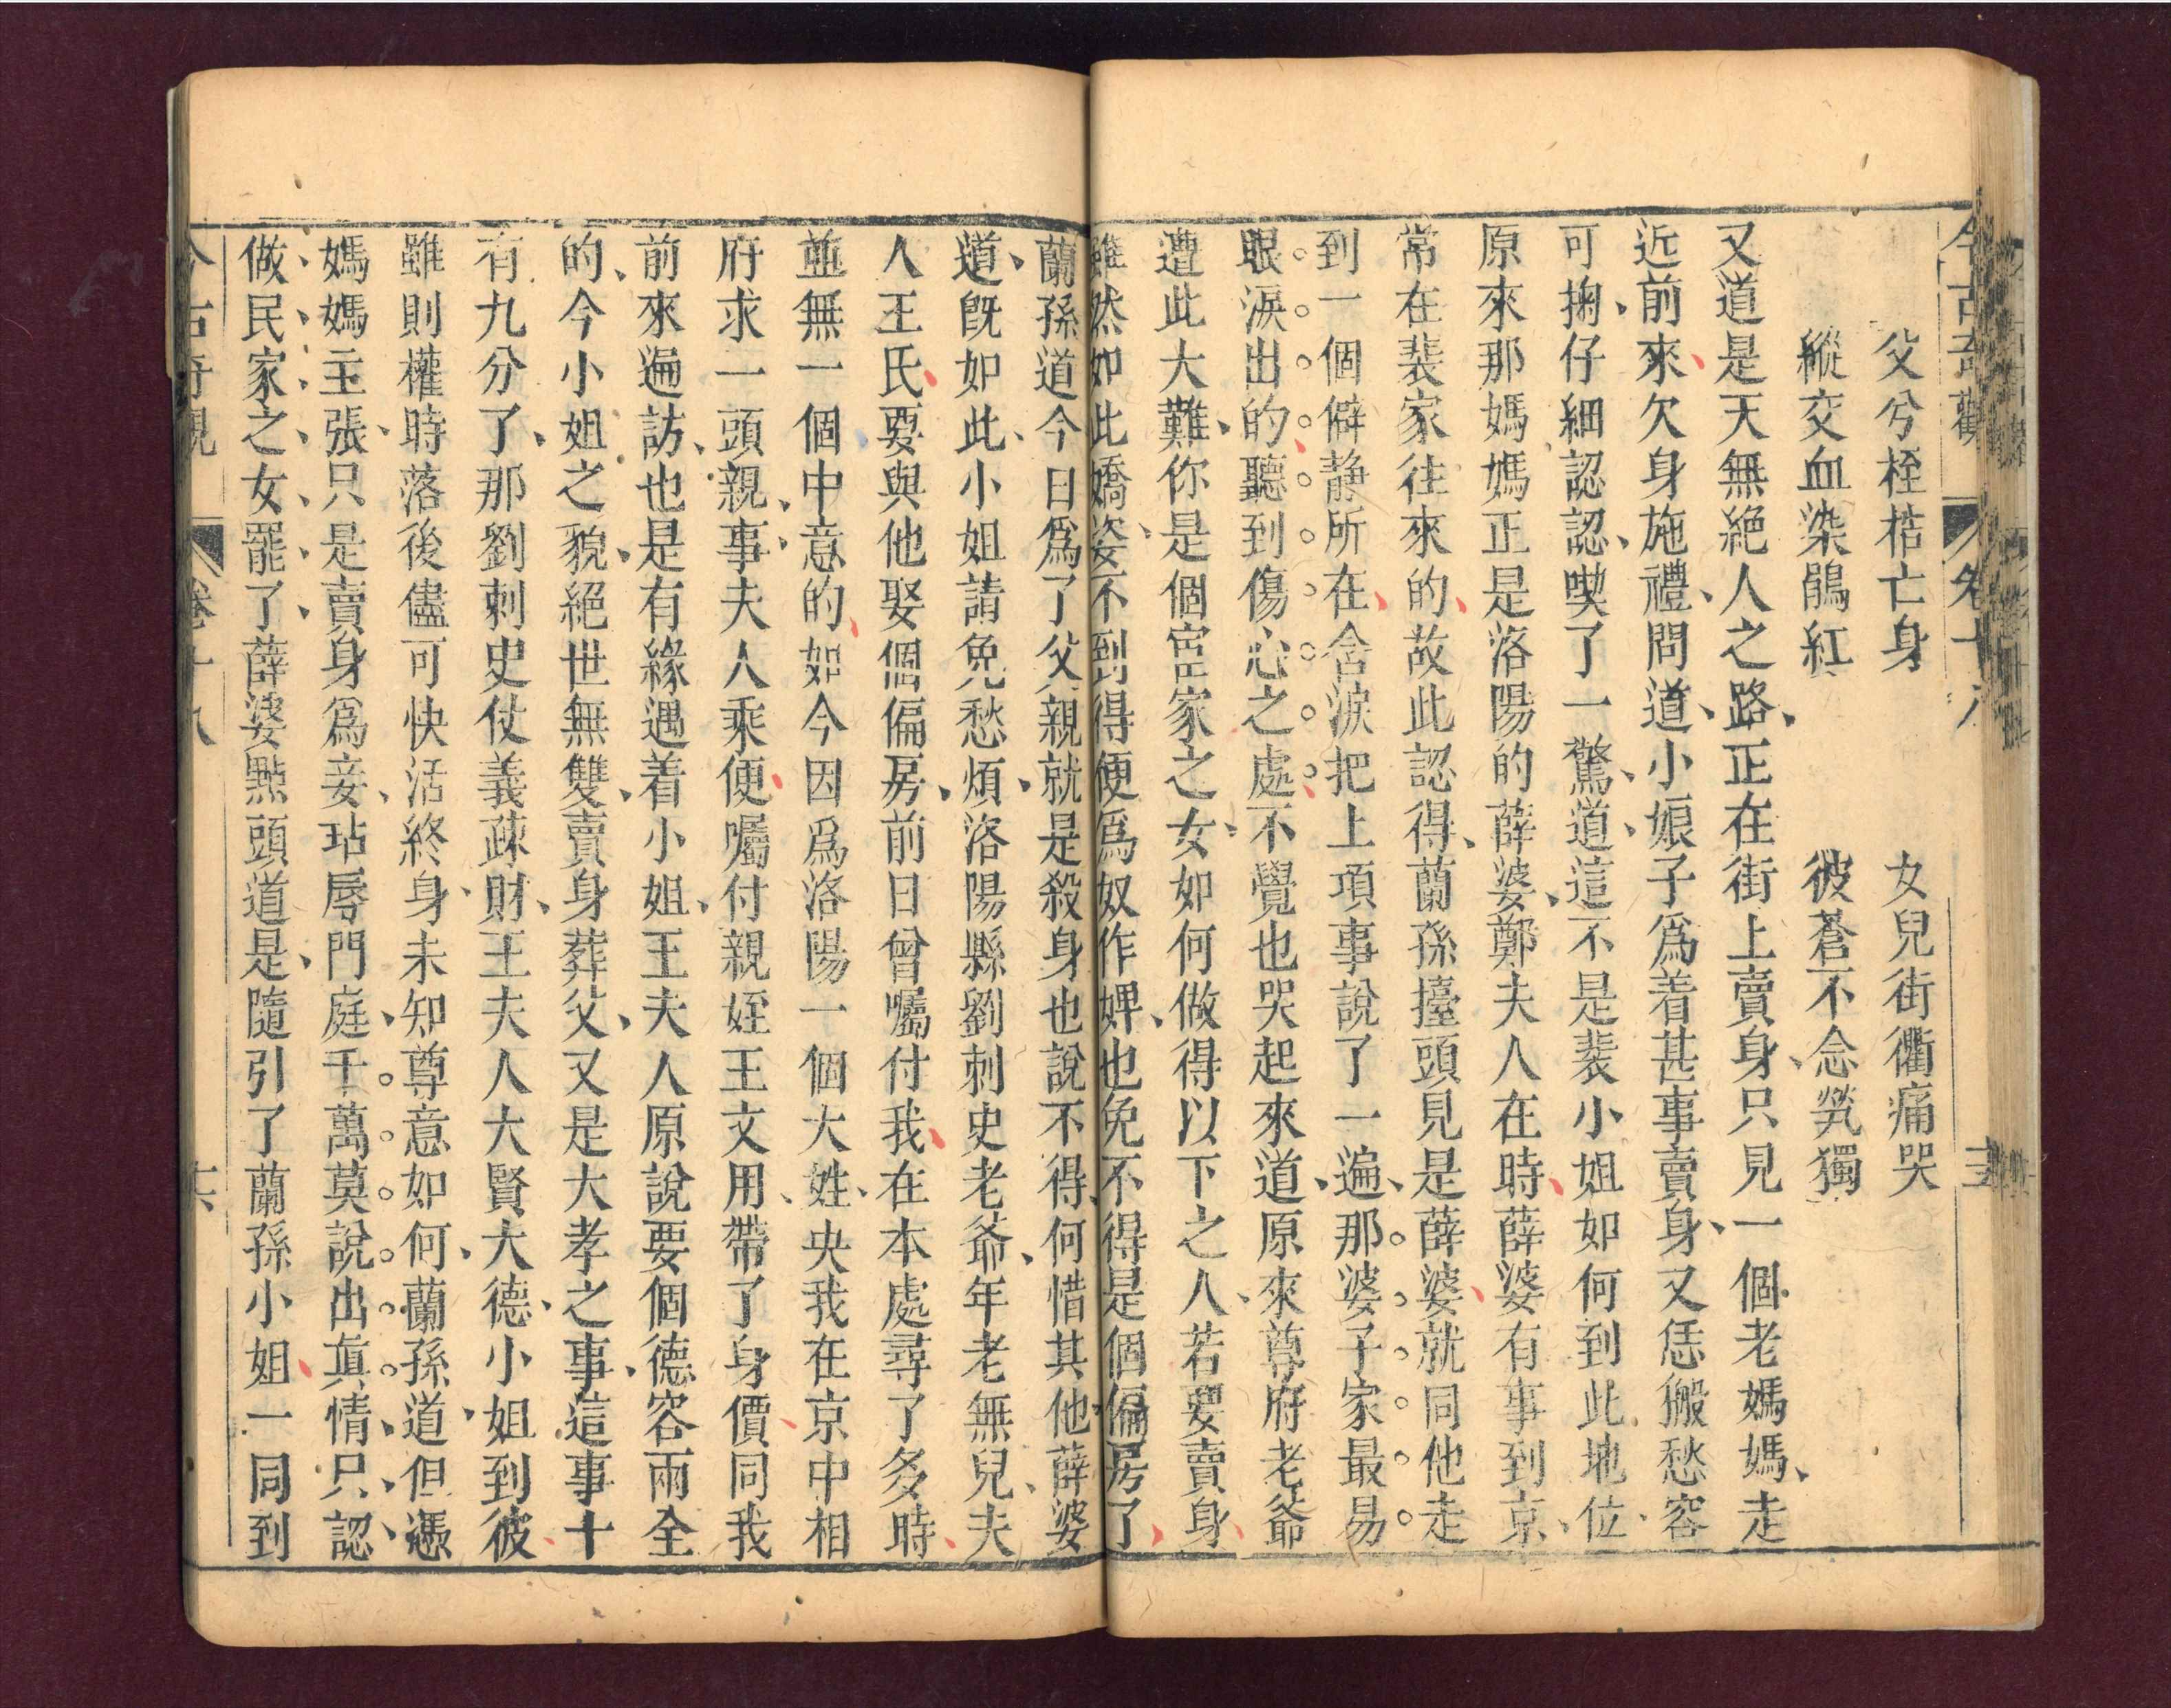 今古奇觀 卷十八
父兮桎梏亡身 女兒街衢痛哭
縱交血染鵑紅 彼蒼不念煢獨
又道是天無絕人之路、正在街上賣身、只見一個老媽媽、走
近前來、欠身施禮、問道、小娘子爲着甚事賣身、又恁搬愁容
可掬、仔細認認、喫了一驚、道、這不是裴小姐如何到此地位、
原來那媽媽正是洛陽的薛婆、鄭夫人在時、薛婆有事到京、
常在裴家往來的、故此認得、蘭孫擡頭見是薛婆、就同他走
到一個僻静所在、含淚把上項事說了一遍、那婆子家最易
眼淚出的、聽到傷心之處、不覺也哭起來道、原來尊府老爺
遭此大難、你是個宦家之女、如何做得以下之人、若要賣身、
雖然如此嬌姿、不到得便爲奴作婢、也免不得是個偏房了、
蘭孫道今日爲了父親就是殺身也說不得、何惜其他薛婆
道、既如此、小姐請免愁煩、洛陽縣劉刺史老爺、年老無兒、夫
人王氏、要與他娶個偏房、前日曾囑付我、在本處尋了多時、
並無一個中意的、如今因爲洛陽一個大姓、央我在京中相
府求一頭親、事、夫人乘便、囑付親姪王文用、帶了身價、同我
前來遍訪、也是有緣遇着小姐、王夫人原說要個德容兩全
的、今小姐之貌、絕世無雙、賣身葬父、又是大孝之事、這事十
有九分了、那劉刺史仗義疎財、王夫人大賢大德、小姐到彼、
雖則權時落後儘可快活終身、未知尊意如何、蘭孫道、但憑
媽媽主張、只是賣身爲妾、玷辱門庭、千萬莫說出眞情、只認
做民家之女罷了、薛婆點頭道是、隨引了蘭孫小姐、一同到
今古奇觀 卷十八 十六